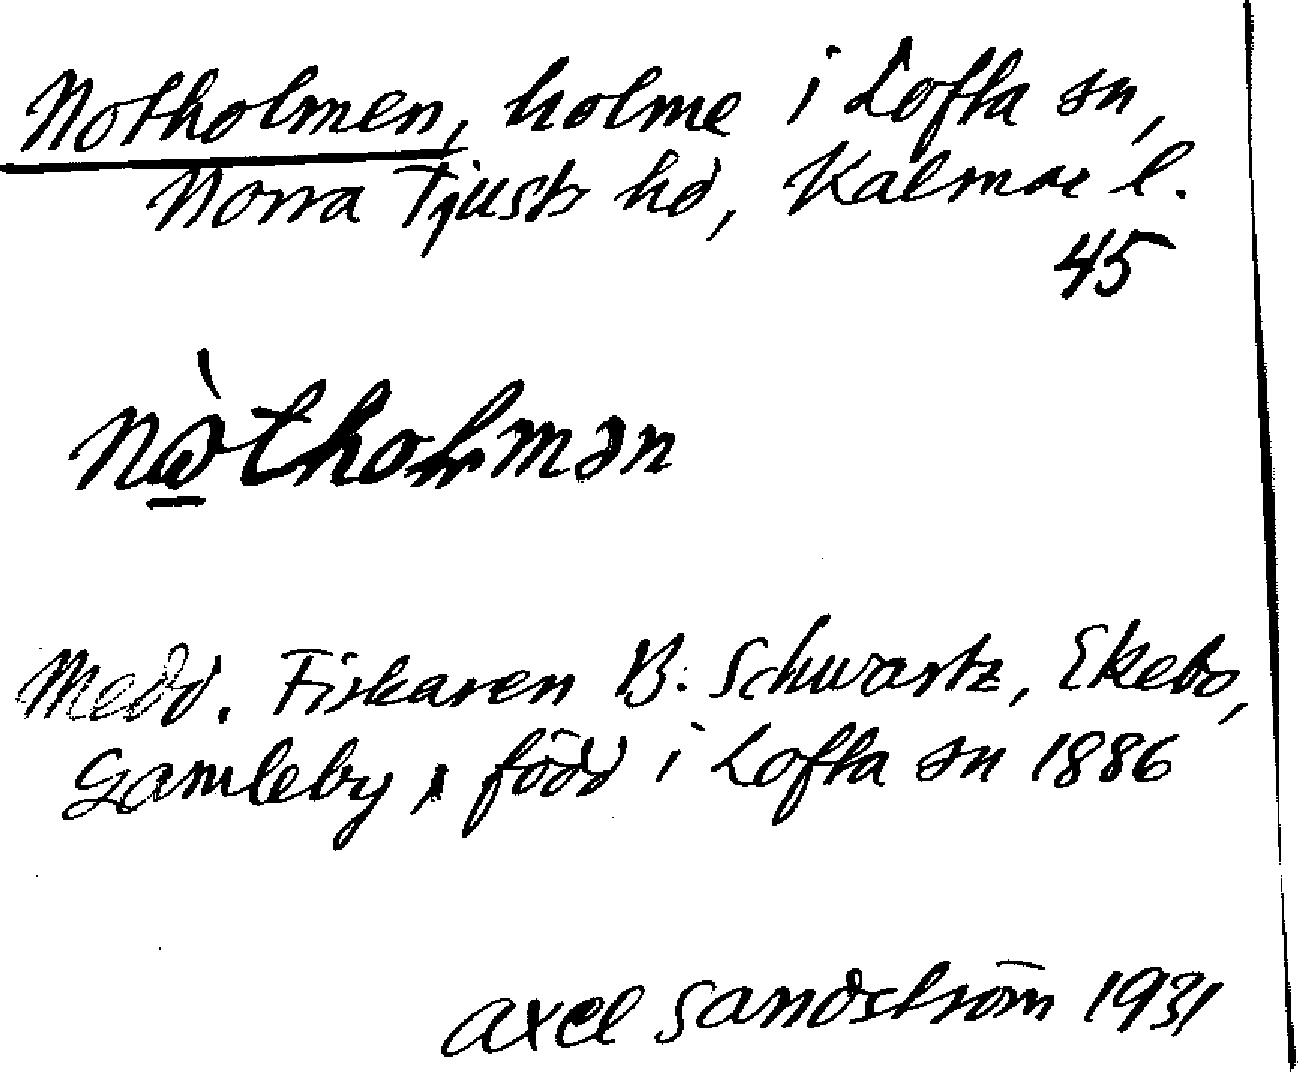 Notholmen, holme i Lofta sn,
Norra Tjusts hd, Kalmar l.
45
nò̱tholmən
Medd. Fiskaren B. Schwartz, Ekebo,
Gamleby, född i Lofta sn 1886
Axel Sandström 1931